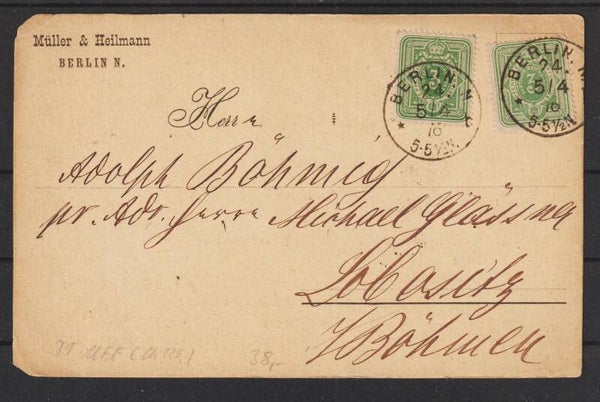 Müller & Heilmann
BERLIN N.
BERLIN. N.
24.
5/4
76
5-5½N.
BERLIN. N.
24.
5/4
76
5-5½N
Herrn
Adolph Böhmig
pr. Adr. Herrn Michael Glässner
Lobositz
i/Böhmen
31 MEF
38,-